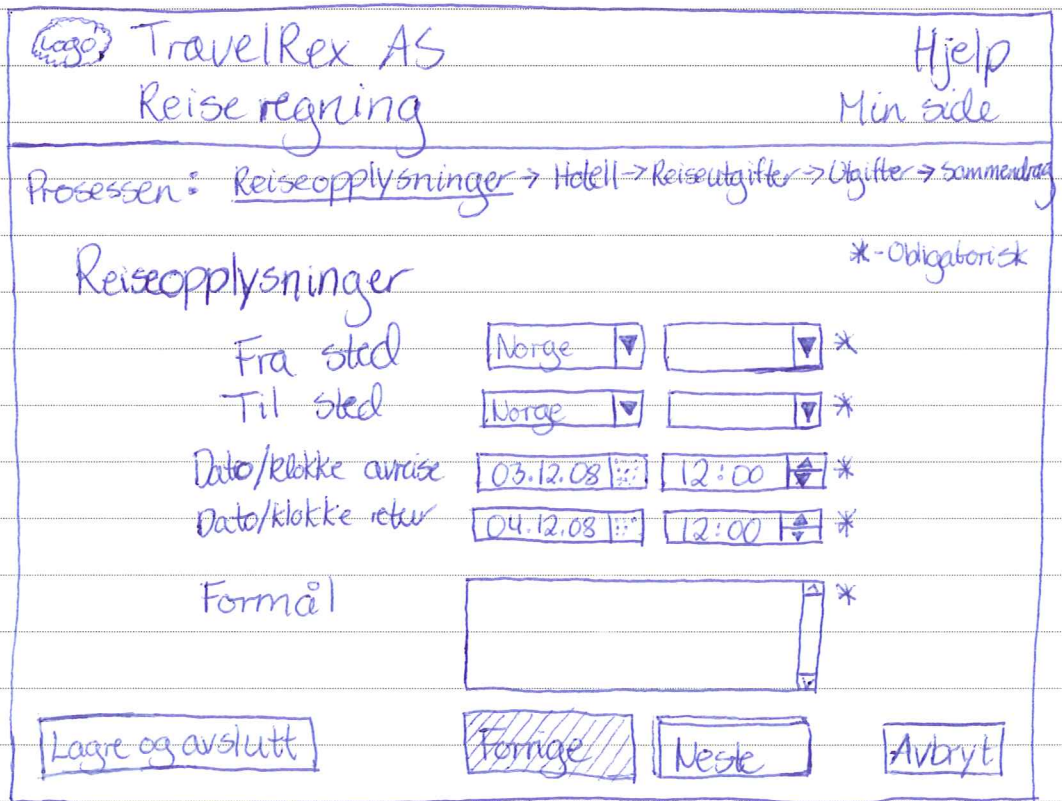 Logo TravelRex AS Hjelp
Reiseregning Min side
Prosessen: Reiseopplysninger → Hotell → Reiseutgifter → Utgifter → Sammendrag
*-Obligatorisk
Reiseopplysninger
Fra sted Norge *
Til sted Norge *
Dato/klokke avreise 03.12.08 12:00 *
Dato/klokke retur 04.12.08 12:00 *
Formål *
Lagre og avslutt Forrige Neste Avbryt